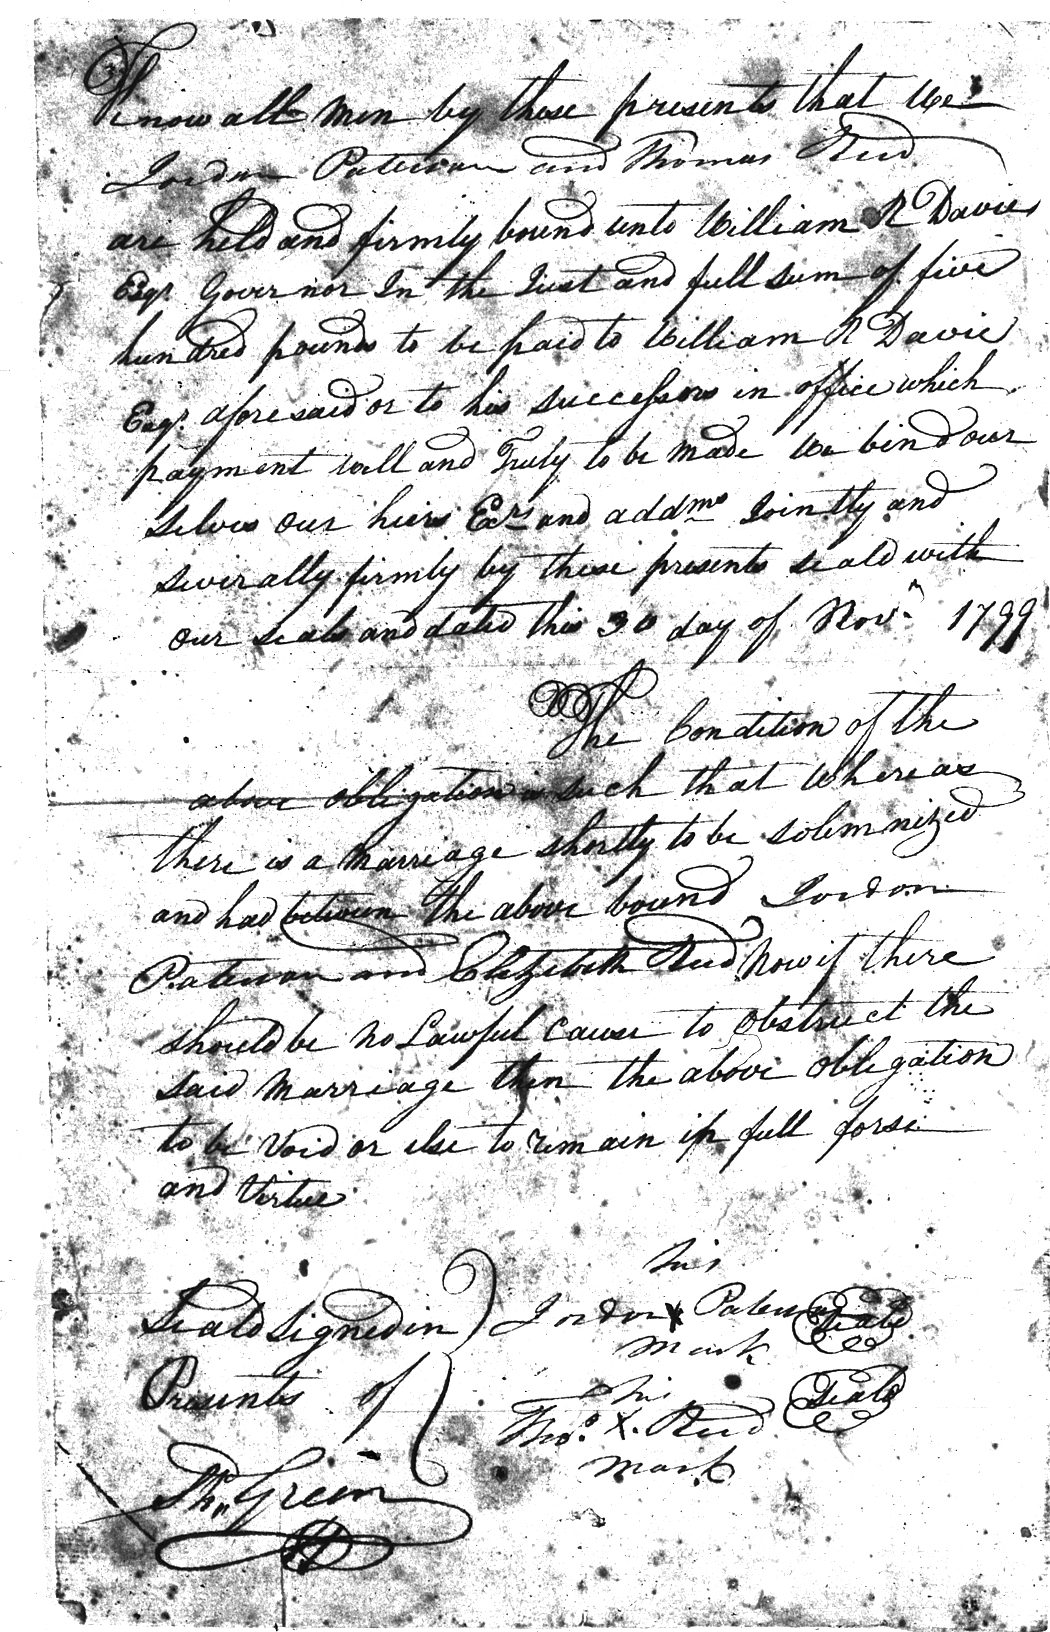 Know all Men by these presents that We
Jordon Pateman and Thomas Reed
are held and firmly bound unto William R Davie
Esqr Governor In the Just and full sum of five
hundred pounds to be paid to William R Davie
Esqr. aforesaid or to his successors in office which
payment well and Truly to be Made We bind our
selves our heirs Exrs and addmrs Jointly and
severally firmly by these presents seald with
our seals and dated this 30 day of Novr 1799
The Condition of the
above obligation is such that Whereas
there is a Marriage shortly to be solemnized
and had between the above bound Jordon
Pateman and Elizibeth Reed Now if there
should be No Lawful Cause to obstruct the
said Marriage then the above obligation
to be Void or else to remain in full forse
and Virtue
his
Seald Signed in Jordon X Pateman Seald
Mark
Presents of his Seald
Thos. X. Reed
Mark
Green